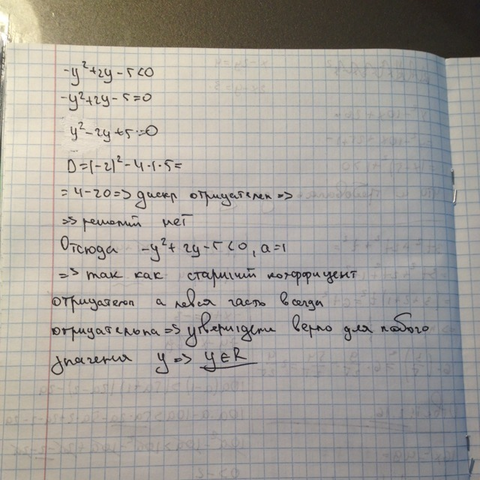 -y²+2y-5<0
-y²+2y-5=0
y²-2y+5=0
D=(-2)²-4·1·5=
=4-20=> дискр отрицателен =>
=> решений нет
Отсюда -y²+2y-5<0, a=1
=> так как старший коэффицент
отрицателен а левая часть всегда
отрицательна => утверждение верно для любого
значения y => y∈R